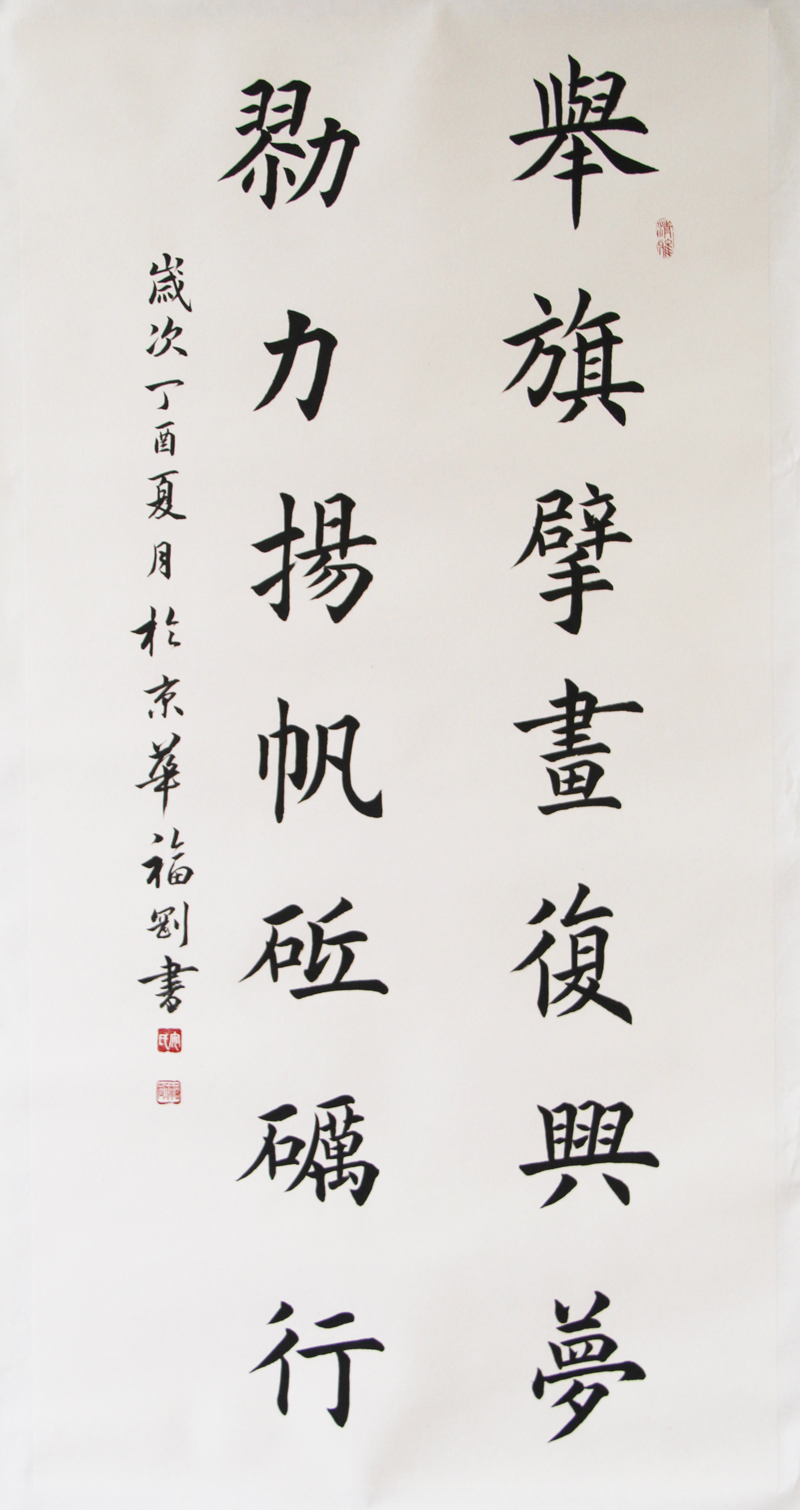 舉旗擘畫復興夢
清雅
勠力揚帆砥礪行
歲次丁酉夏月於京華福剛書